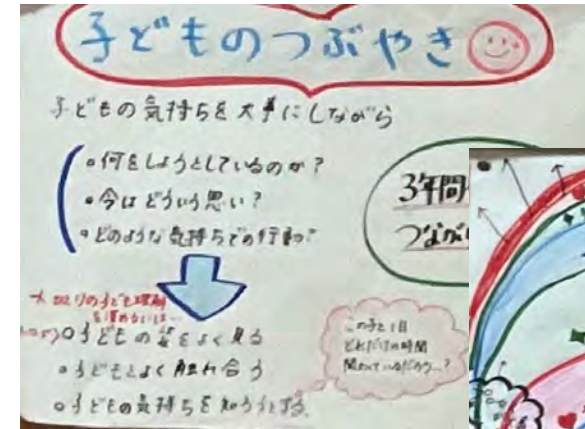 子どものつぶやき
子どもの気持ちを大事にしながら
・何をしようとしているのか?
・今はどういう思い?
・どのような気持ちでの行動?
3年間
つなが
子ども理解
○子どもの姿をよく見る
・子どもとよく触れ合う
○子どもの気持ちを知ろうとする。
この子と1日
どれだけの時間
関わっているだろう…?